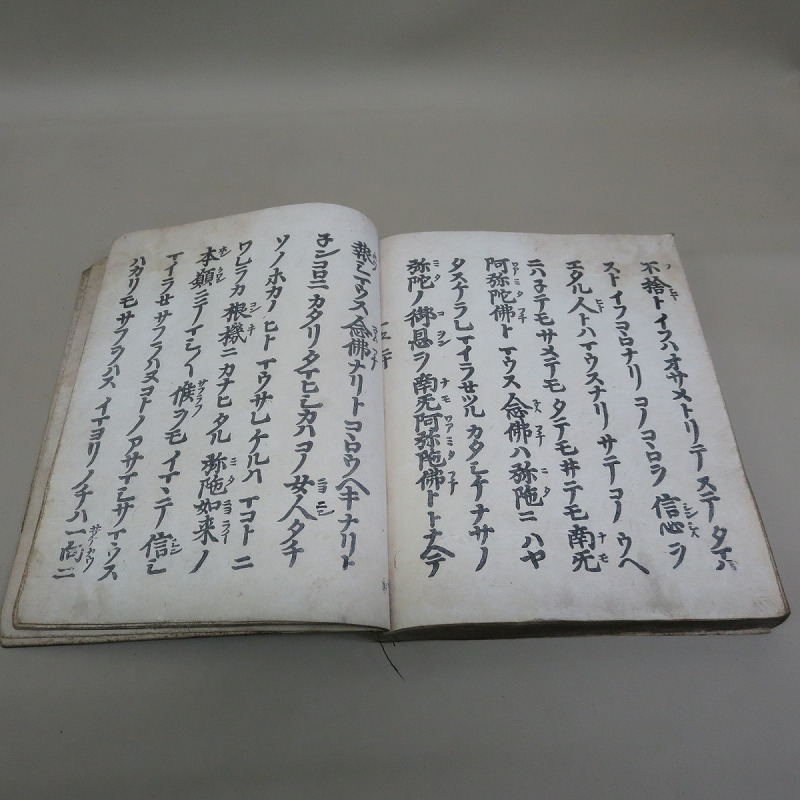 不捨トイフハオサメトリテステタマハ
ストイフコヽロナリコノコヽロヲ信心ヲ
エタル人トハマウスナリサテコノウヘ
ニハネテモサメテモタテモヰテモ南无
阿弥陀佛トマウス念佛ハ弥陀ニハヤ
タスケラレマイラセツルカタシケナサノ
弥陀ノ御恩ヲ南无阿弥陀佛トトナヘテ
報シマウス念佛ナリトコヽロウヘキナリト
ネンコロニカタリタマヒシカハコノ女人タチ
ソノホカノヒトマウサレケルハマコトニ
ワレラカ根機ニカナヒタル弥陀如来ノ
本願ニテマシマシ候ヲモイマヽテ信シ
マイラセサフラハヌコトノアサマシサマウス
ハカリモサフラハスイマヨリノチハ一向ニ